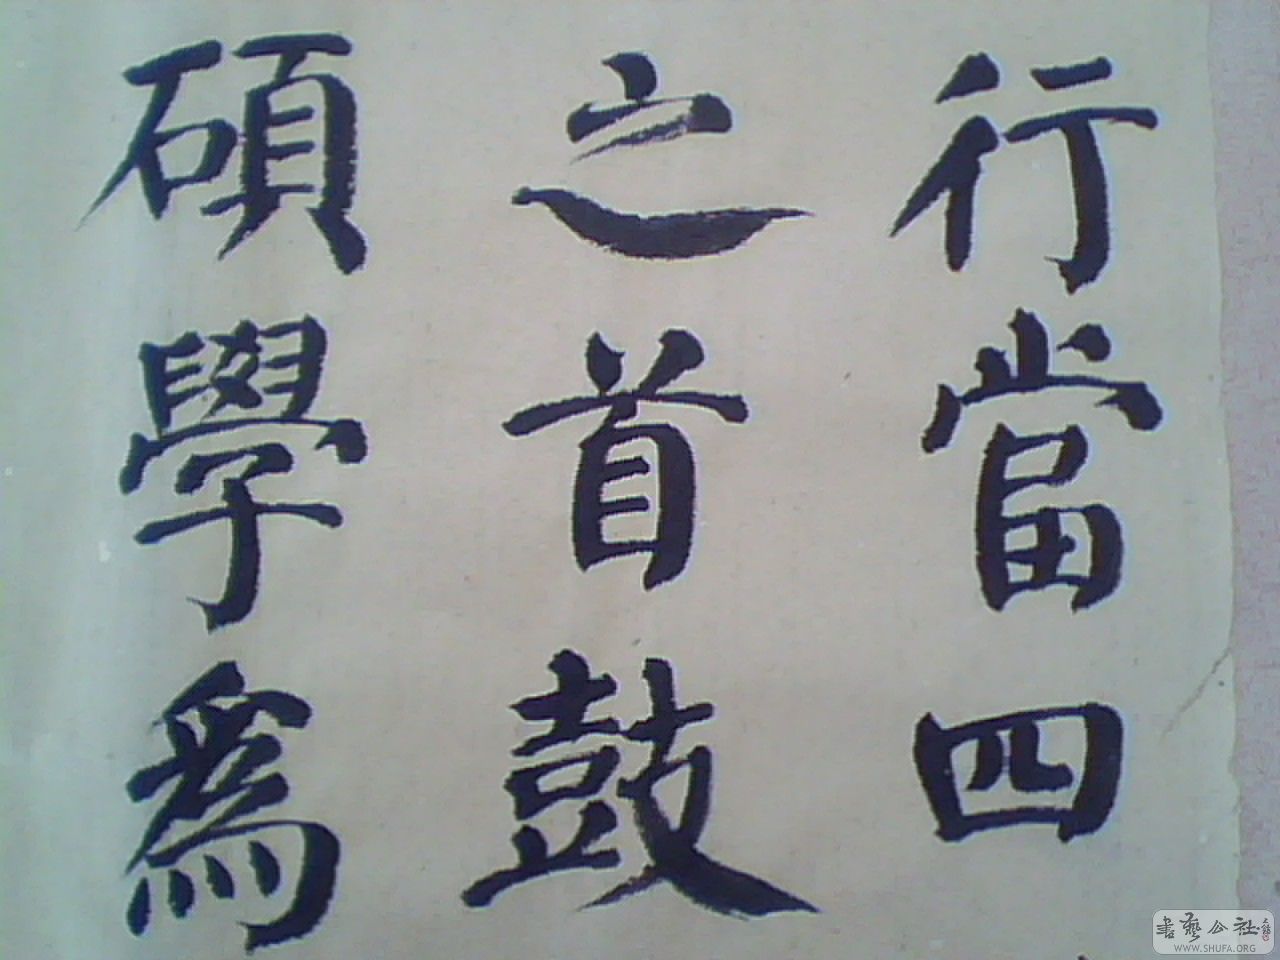 行當四
之首鼓
碩學爲
書藝公社
WWW.SHUFA.ORG